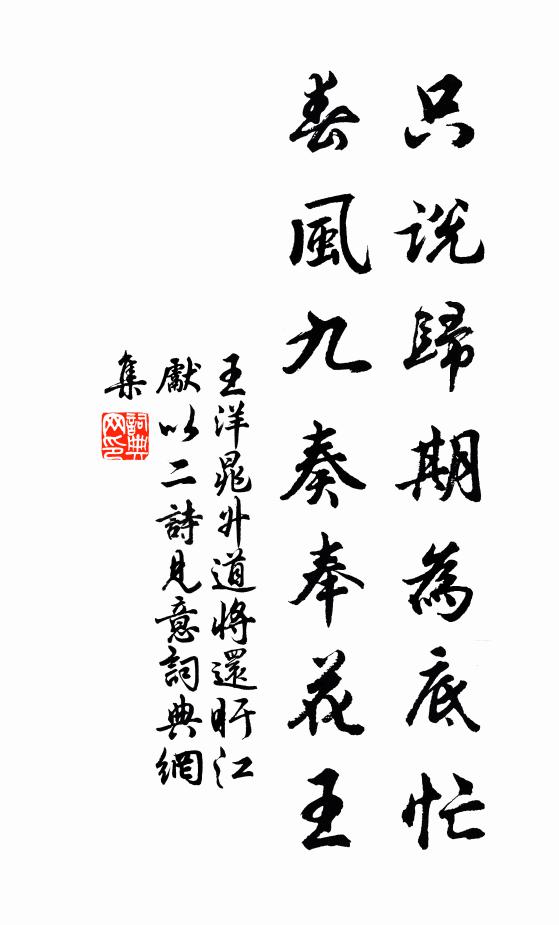 只說歸期為底忙
春風九奏奉花王
王洋晁升道將還盱江
獻以二詩見意詞典網
集
詞典
网印